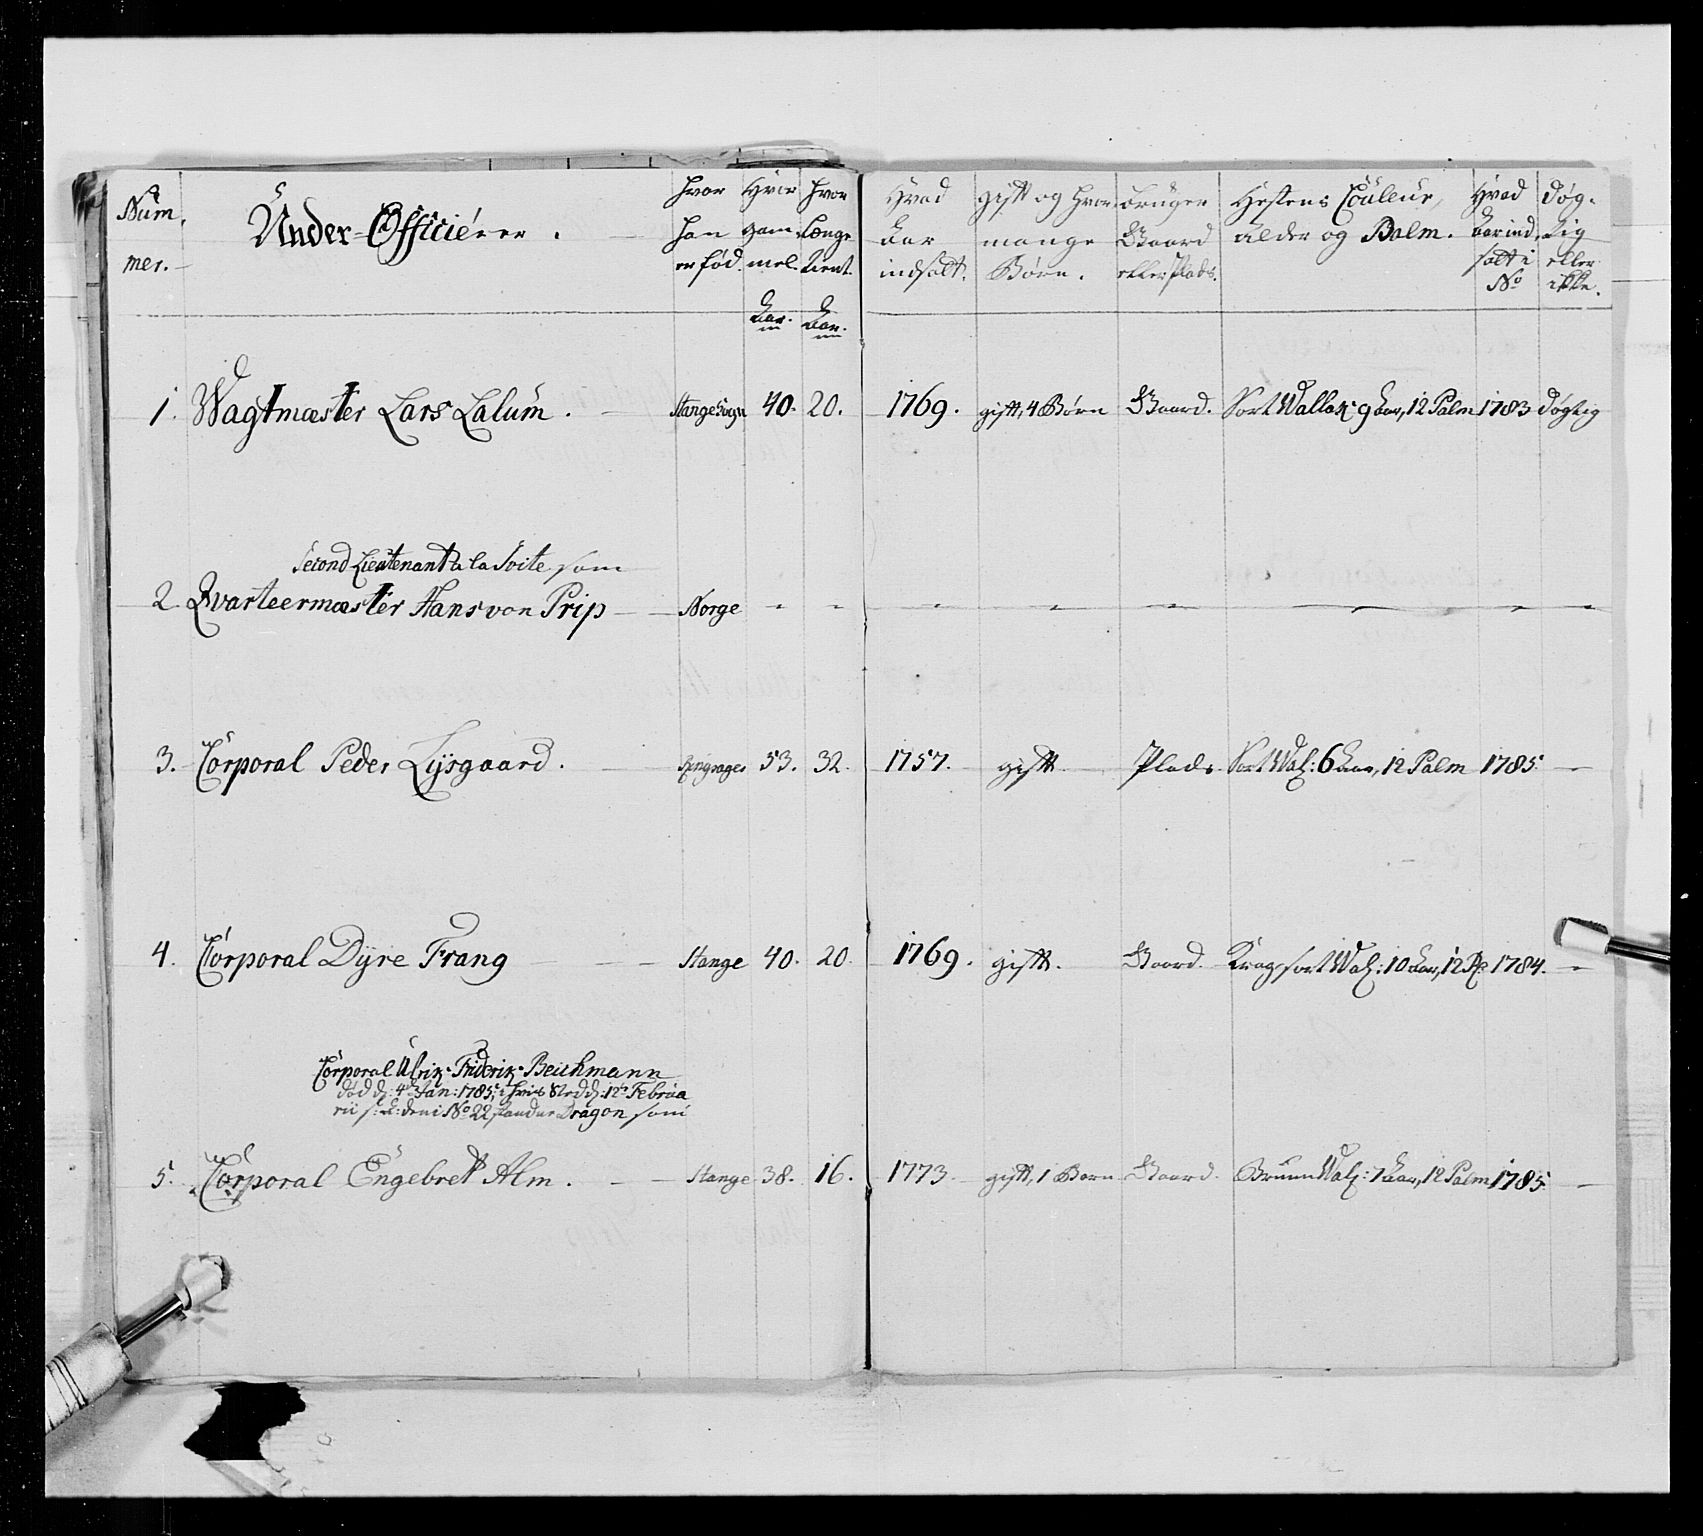 Num,
mer.
Under-Officierer.
hvor
han
er fød.
Hvor
gam-
mel.
Aar.
hvor
længe
tient.
Aar.
Hvad
Aar
indsalt.
gift og hvor
mange
Børn.
bruger
Gaard
eller Plads.
Hestens Couleur,
alder og Palm.
Hvad
Aar ind,
salt i
No
døg-
tig
eller
ikke.
1. Wagtmæster Lars Lalum. Stange Sogn 40. 20. 1769. gift, 4 Børn Gaard. Sort Wallak 9 Aar, 12 Palm 1783 døgtig
Second Lieutenant a la Svite som
2. Qvarteermæster Hans von Prip Norge - - - - - - - -
3. Corporal Peder Lysgaard. Ringsager 53. 32. 1757. gift Plads Sort Wal: 6 Aar, 12 Palm 1785. -
4. Corporal Dyre Frang Stange 40. 20. 1769. gift. Gaard. Kragsort Wal: 10 Aar, 12 P. 1784. -
Corporal Ulrik Friderik Beichmann
død d: 4de Jan: 1785, i hvis Sted d: 12te Februa
rii s: A: den i No 22 staaende Dragon som
5. Corporal Engebret Alm. Stange 38. 16. 1773. gift, 1 Barn Gaard. Bruun Wal: 7 Aar, 12 Palm 1785. -